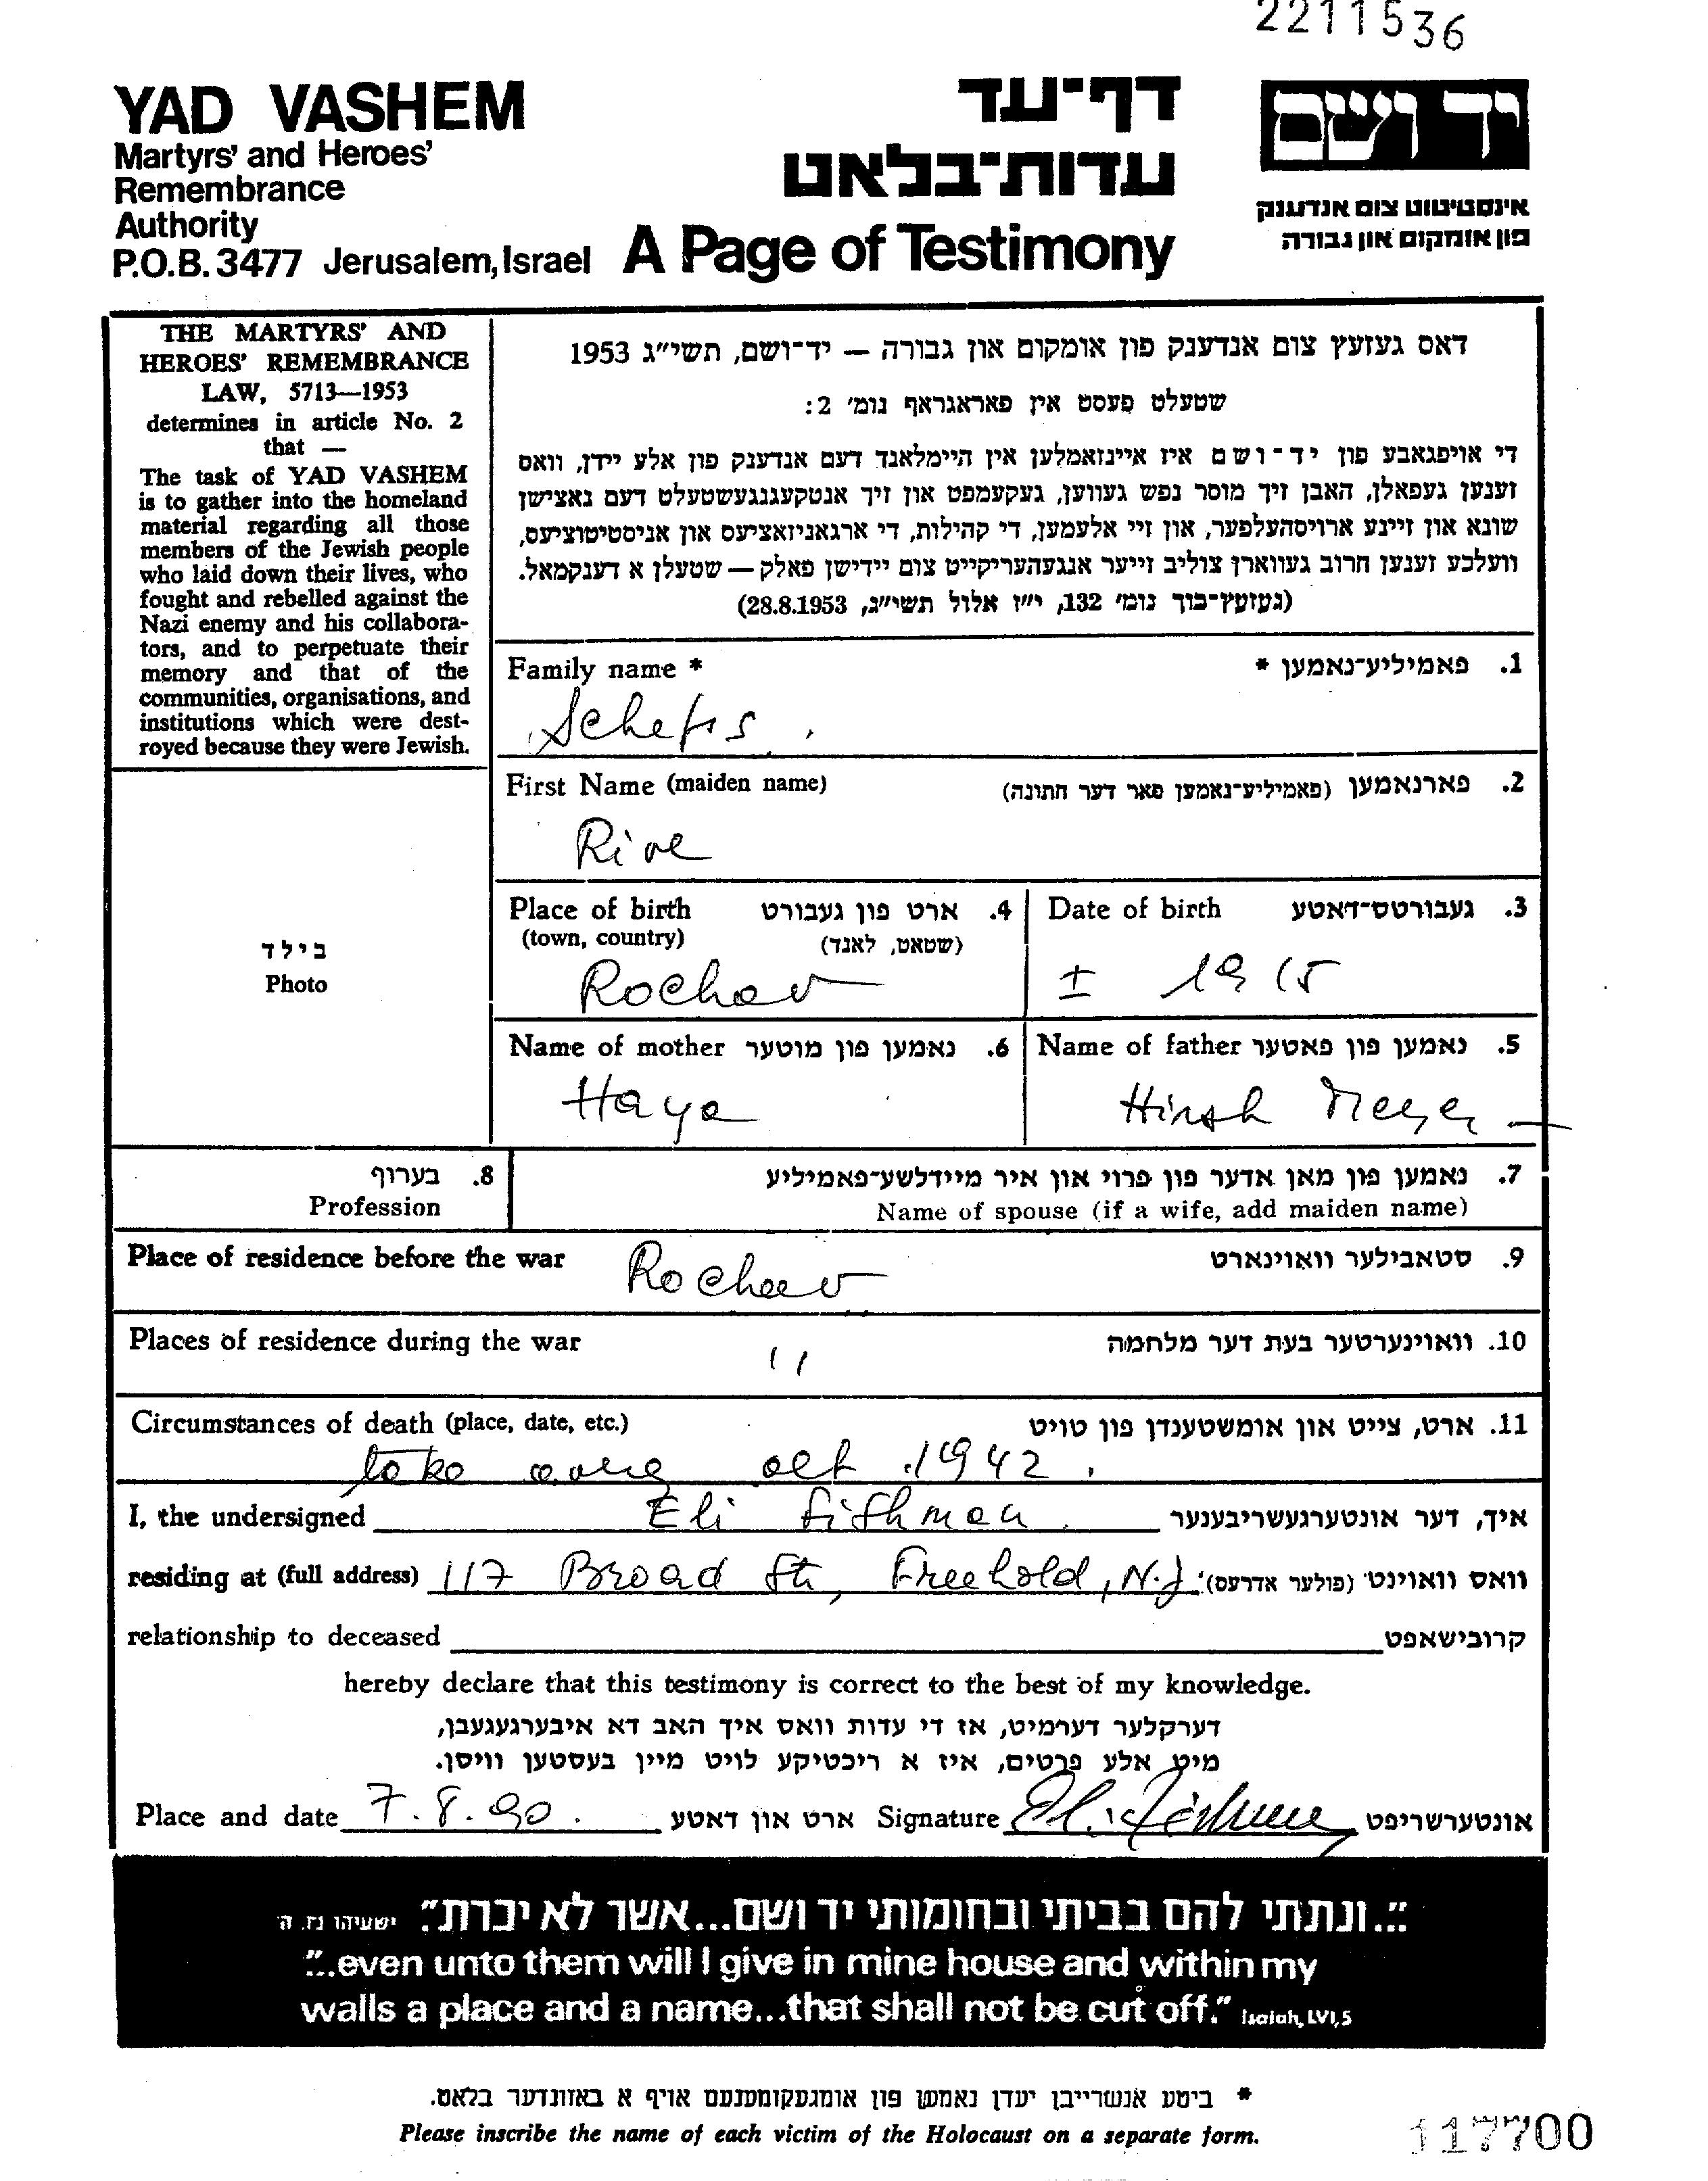 2211536
YAD VASHEM
Martyrs' and Heroes'
Remembrance
Authority
P.O.B. 3477 Jerusalem, Israel
דף־עד
עדות־בלאט
A Page of Testimony
יד ושם
אינסטיטוט צום אנדענק
פון אומקום און גבורה
THE MARTYRS' AND
HEROES' REMEMBRANCE
LAW, 5713—1953
determines in article No. 2
that —
The task of YAD VASHEM
is to gather into the homeland
material regarding all those
members of the Jewish people
who laid down their lives, who
fought and rebelled against the
Nazi enemy and his collabora-
tors, and to perpetuate their
memory and that of the
communities, organisations, and
institutions which were dest-
royed because they were Jewish.
דאס געזעץ צום אנדענק פון אומקום און גבורה — יד־ושם, תשי״ג 1953
שטעלט פעסט אין פאראגראף נומ׳ 2:
די אויפגאבע פון יד־ושם איז איינזאמלען אין היימלאנד דעם אנדענק פון אלע יידן, וואס
זענען געפאלן, האבן זיך מוסר נפש געווען, געקעמפט און זיך אנטקעגנגעשטעלט דעם נאצישן
שונא און זיינע ארויסהעלפער, און זיי אלעמען, די קהילות, די ארגאניזאציעס און אניסטיטוציעס,
וועלכע זענען חרוב געווארן צוליב זייער אנגעהעריקייט צום יידישן פאלק — שטעלן א דענקמאל.
(געזעץ־בוך נומ׳ 132, י״ז אלול תשי״ג, 28.8.1953)
Family name *
1. פאמיליע־נאמען *
First Name (maiden name)
2. פארנאמען (פאמיליע־נאמען פאר דער חתונה)
Rive
Place of birth
(town, country)
4. ארט פון געבורט
(שטאט, לאנד)
Rochov
Date of birth
3. געבורטס־דאטע
± 1915
בילד
Photo
Name of mother 6. נאמען פון מוטער
Haya
Name of father 5. נאמען פון פאטער
Hirsh Meyer
8. בערוף
Profession
7. נאמען פון מאן אדער פון פרוי און איר מיידלשע־פאמיליע
Name of spouse (if a wife, add maiden name)
Place of residence before the war
Rochov
9. סטאבילער וואוינארט
Places of residence during the war
"
10. וואוינערטער בעת דער מלחמה
Circumstances of death (place, date, etc.)
11. ארט, צייט און אומשטענדן פון טויט
oct. 1942.
I, the undersigned Eli Fishman איך, דער אונטערגעשריבענער
residing at (full address) 117 Broad St, Freehold, N.J. וואס וואוינט (פולער אדרעס)
relationship to deceased קרובישאפט
hereby declare that this testimony is correct to the best of my knowledge.
דערקלער דערמיט, אז די עדות וואס איך האב דא איבערגעגעבן,
מיט אלע פרטים, איז א ריכטיקע לויט מיין בעסטען וויסן.
Place and date 7.8.90. ארט און דאטע Signature אונטערשריפט
"...ונתתי להם בביתי ובחומותי יד ושם...אשר לא יכרת" ישעיהו נז. ה
"...even unto them will I give in mine house and within my
walls a place and a name...that shall not be cut off." Isaiah, LVI, 5
* ביטע אנשרייבן יעדן נאמען פון אומגעקומענעם אויף א באזונדער בלאט.
Please inscribe the name of each victim of the Holocaust on a separate form.
117700